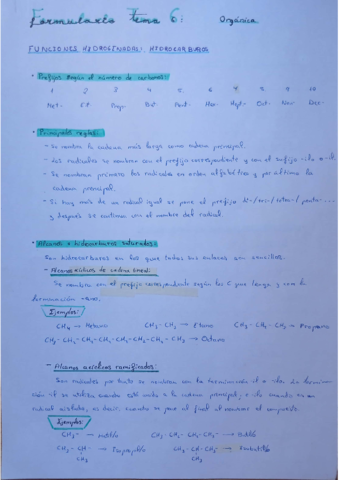 Formulario Tema 6: Orgánica
FUNCIONES HIDROGENADAS: HIDROCARBUROS
• Prefijos según el número de carbonos:
1 2 3 4 5 6 7 8 9 10
Met- Et- Prop- But- Pent- Hex- Hept- Oct- Non- Dec-
• Principales reglas:
- Se nombra la cadena más larga como cadena principal.
- Los radicales se nombran con el prefijo correspondiente y con el sufijo -ilo o -il.
- Se nombran primero los radicales en orden alfabético y por último la
cadena principal.
- Si hay más de un radical igual se pone el prefijo di-/tri-/tetra-/penta-...
y después se continua con el nombre del radical.
• Alcanos o hidrocarburos saturados:
Son hidrocarburos en los que todos sus enlaces son sencillos.
- Alcanos acíclicos de cadena lineal:
Se nombran con el prefijo correspondiente según los C que tenga y con la
terminación -ano.
Ejemplos:
CH4 → Metano CH3-CH3 → Etano CH3-CH2-CH3 → Propano
CH3-CH2-CH2-CH2-CH2-CH2-CH2-CH3 → Octano
- Alcanos acíclicos ramificados:
Son radicales por tanto se nombran con la terminación il o ilo. La termina-
ción il se utiliza cuando está unido a la cadena principal, e ilo cuando es un
radical aislado, es decir, cuando se pone al final al nombrar el compuesto.
Ejemplos:
CH3- → metilo CH3-CH2-CH2-CH2- → Butilo
CH3-CH-
CH3